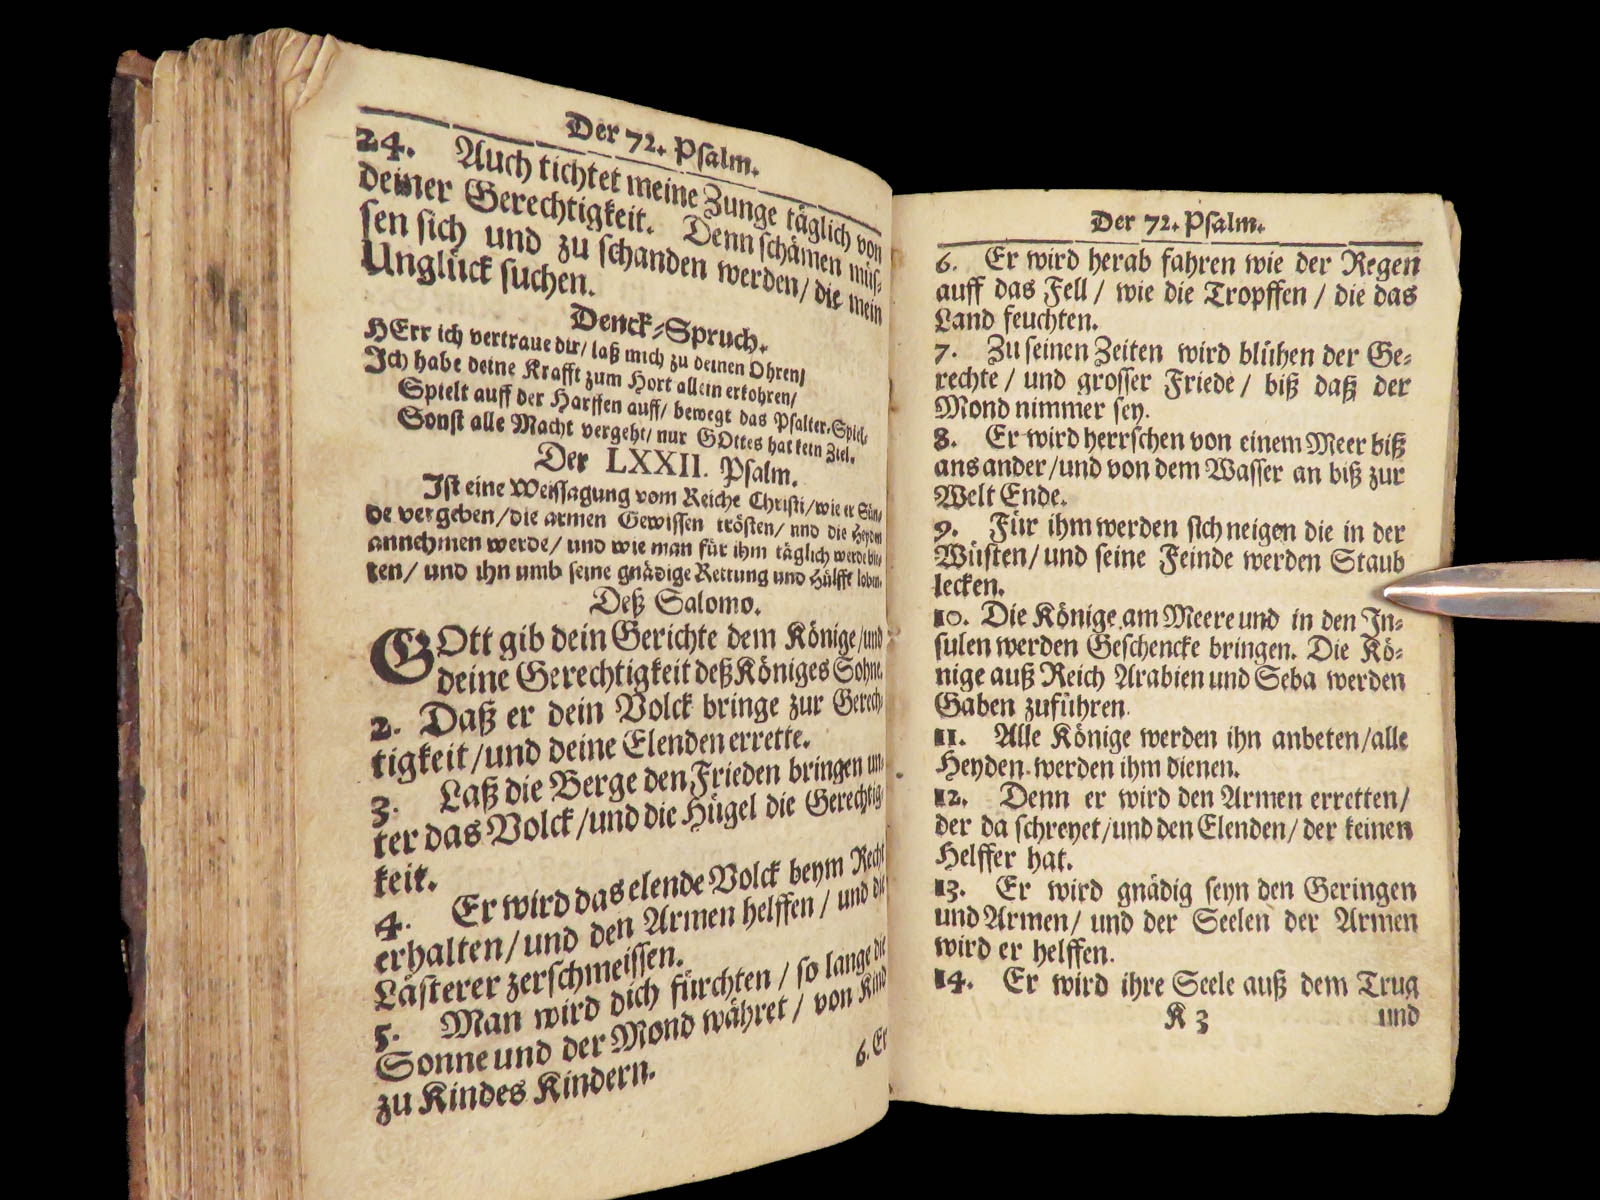 Der 72. Psalm.
24. Auch tichtet meine Zunge täglich von
deiner Gerechtigkeit. Denn schämen müs-
sen sich und zu schanden werden/ die mein
Unglück suchen.
Denck-Spruch.
HErr ich vertraue dir/ laß mich zu deinen Ohren/
Ich habe deine Krafft zum Hort allein erkohren/
Spielt auff der Harffen auff/ bewegt das Psalter-Spiel,
Sonst alle Macht vergeht/ nur GOttes hat kein Ziel.
Der LXXII. Psalm.
Ist eine Weissagung vom Reiche Christi/ wie er Sün-
de vergeben/ die armen Gewissen trösten/ nnd die Heyden
annehmen werde/ und wie man für ihm täglich werde bit-
ten/ und ihn umb seine gnädige Rettung und Hülffe loben.
Deß Salomo.
GOtt gib dein Gerichte dem Könige/ und
deine Gerechtigkeit deß Königes Sohne.
2. Daß er dein Volck bringe zur Gerech-
tigkeit/ und deine Elenden errette.
3. Laß die Berge den Frieden bringen un-
ter das Volck/ und die Hügel die Gerechtig-
keit.
4. Er wird das elende Volck beym Recht
erhalten/ und den Armen helffen/ und die
Lästerer zerschmeissen.
5. Man wird dich fürchten/ so lange die
Sonne und der Mond währet/ von Kind
zu Kindes Kindern.
6. Er
Der 72. Psalm.
6. Er wird herab fahren wie der Regen
auff das Fell/ wie die Tropffen/ die das
Land feuchten.
7. Zu seinen Zeiten wird blühen der Ge-
rechte/ und grosser Friede/ biß daß der
Mond nimmer sey.
8. Er wird herrschen von einem Meer biß
ans ander/ und von dem Wasser an biß zur
Welt Ende.
9. Für ihm werden sich neigen die in der
Wüsten/ und seine Feinde werden Staub
lecken.
10. Die Könige am Meere und in den In-
sulen werden Geschencke bringen. Die Kö-
nige auß Reich Arabien und Seba werden
Gaben zuführen.
11. Alle Könige werden ihn anbeten/ alle
Heyden werden ihm dienen.
12. Denn er wird den Armen erretten/
der da schreyet/ und den Elenden/ der keinen
Helffer hat.
13. Er wird gnädig seyn den Geringen
und Armen/ und der Seelen der Armen
wird er helffen.
14. Er wird ihre Seele auß dem Trug
K 3 und